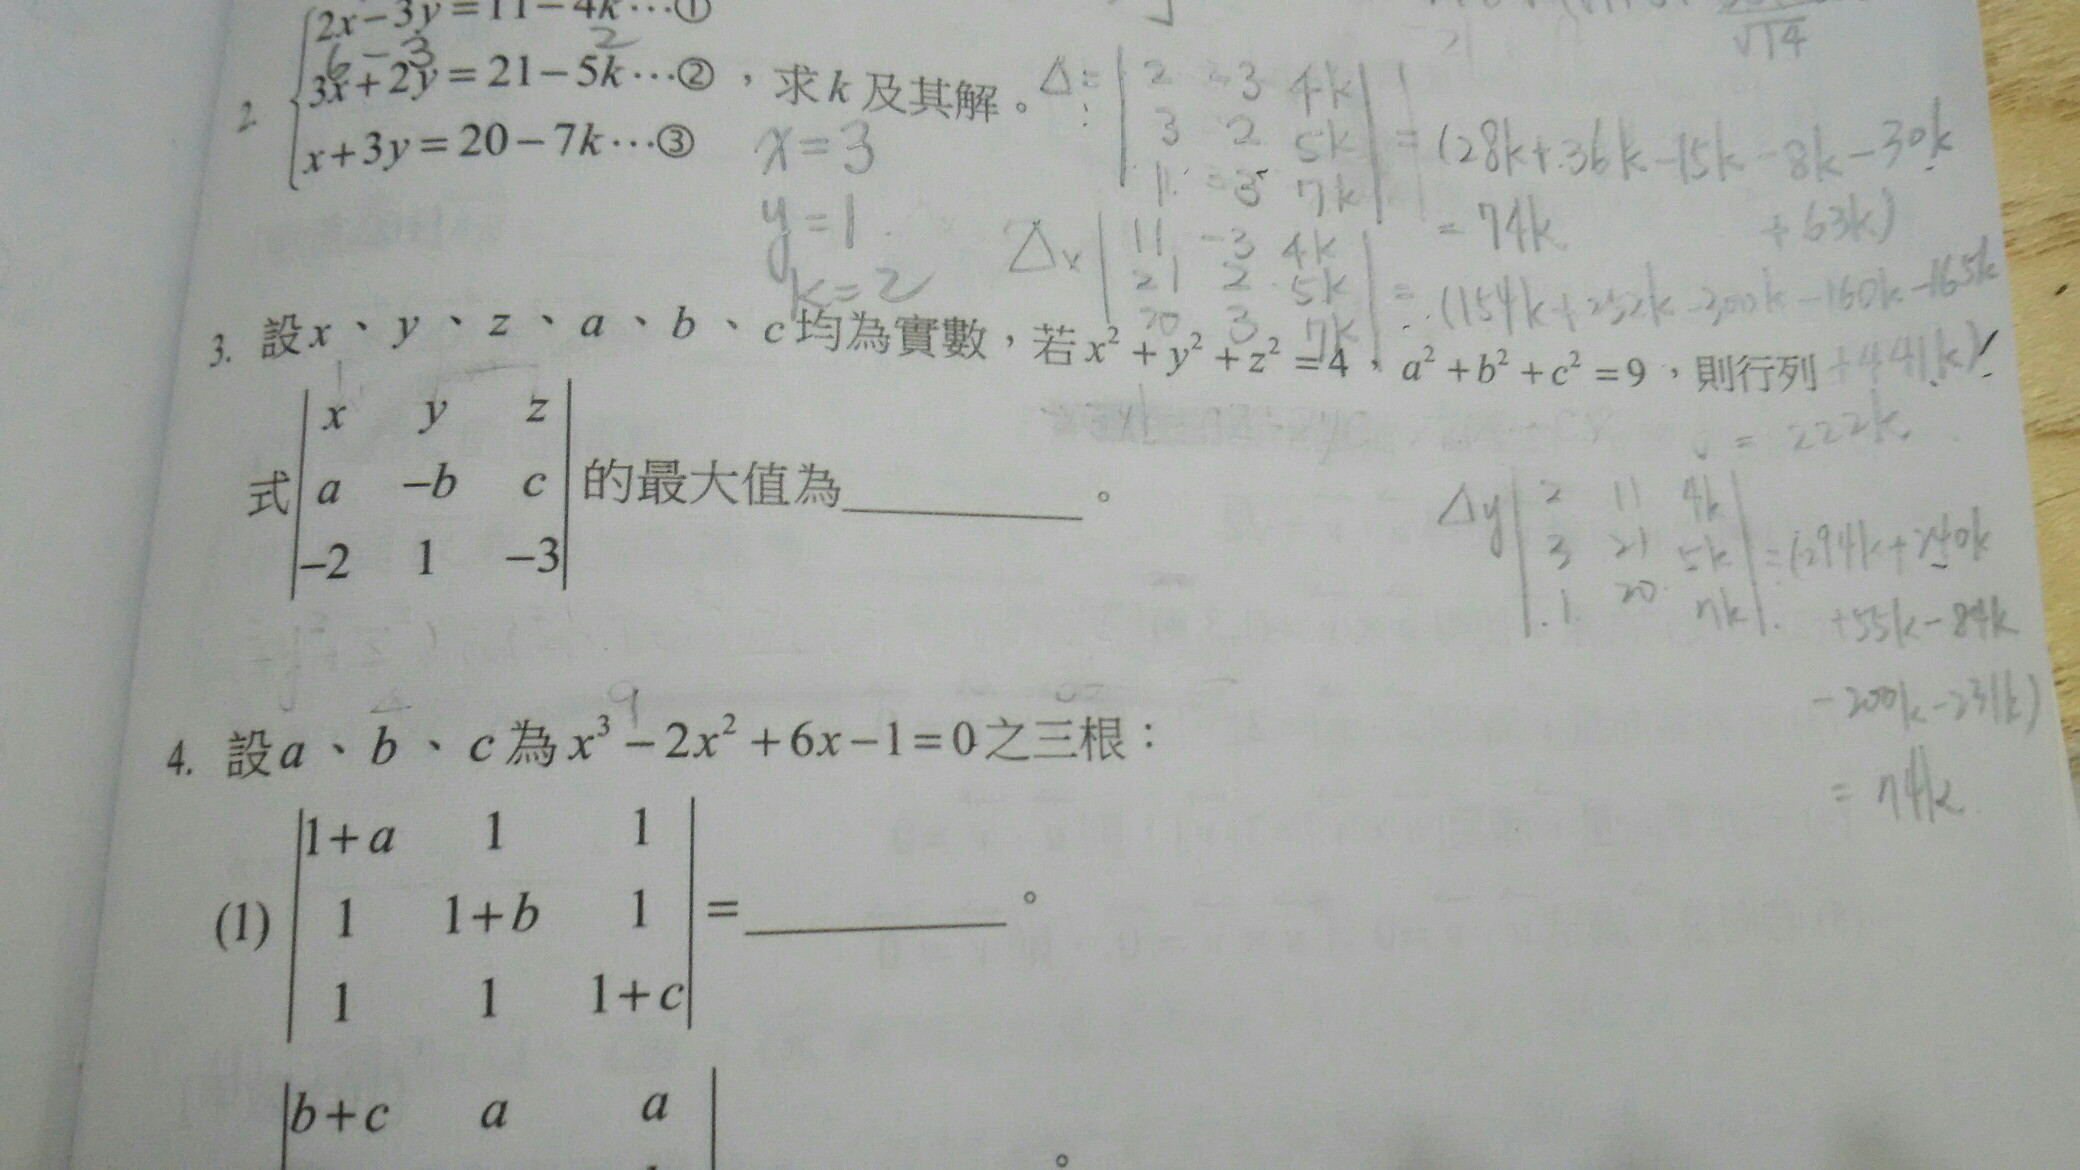 2x-3y=11-4k…①
6-3 2
2. 3x+2y=21-5k…②，求k及其解。
x+3y=20-7k…③
x=3
y=1
k=2
Δ= | 2 -3 4k |
| 3 2 5k |
| 1 3 7k |
=(28k+36k-15k-8k-30k
+63k)
=74k
Δx | 11 -3 4k |
| 21 2 5k |
| 20 3 7k |
=(154k+252k-300k-160k-165k
+441k)
=222k
3. 設x、y、z、a、b、c均為實數，若x²+y²+z²=4，a²+b²+c²=9，則行列
式 | x y z |
| a -b c | 的最大值為________。
| -2 1 -3 |
Δy | 2 11 4k |
| 3 21 5k |
| 1 20 7k |
=(294k+240k
+55k-84k
-200k-231k)
=74k
4. 設a、b、c為x³-2x²+6x-1=0之三根：
| 1+a 1 1 |
(1) | 1 1+b 1 | =________。
| 1 1 1+c |
| b+c a a |
。